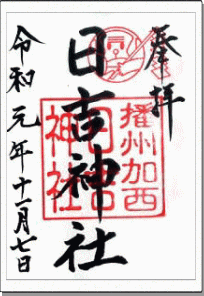 奉拝
播州加西
日吉神社
日吉神社
令和元年十一月七日